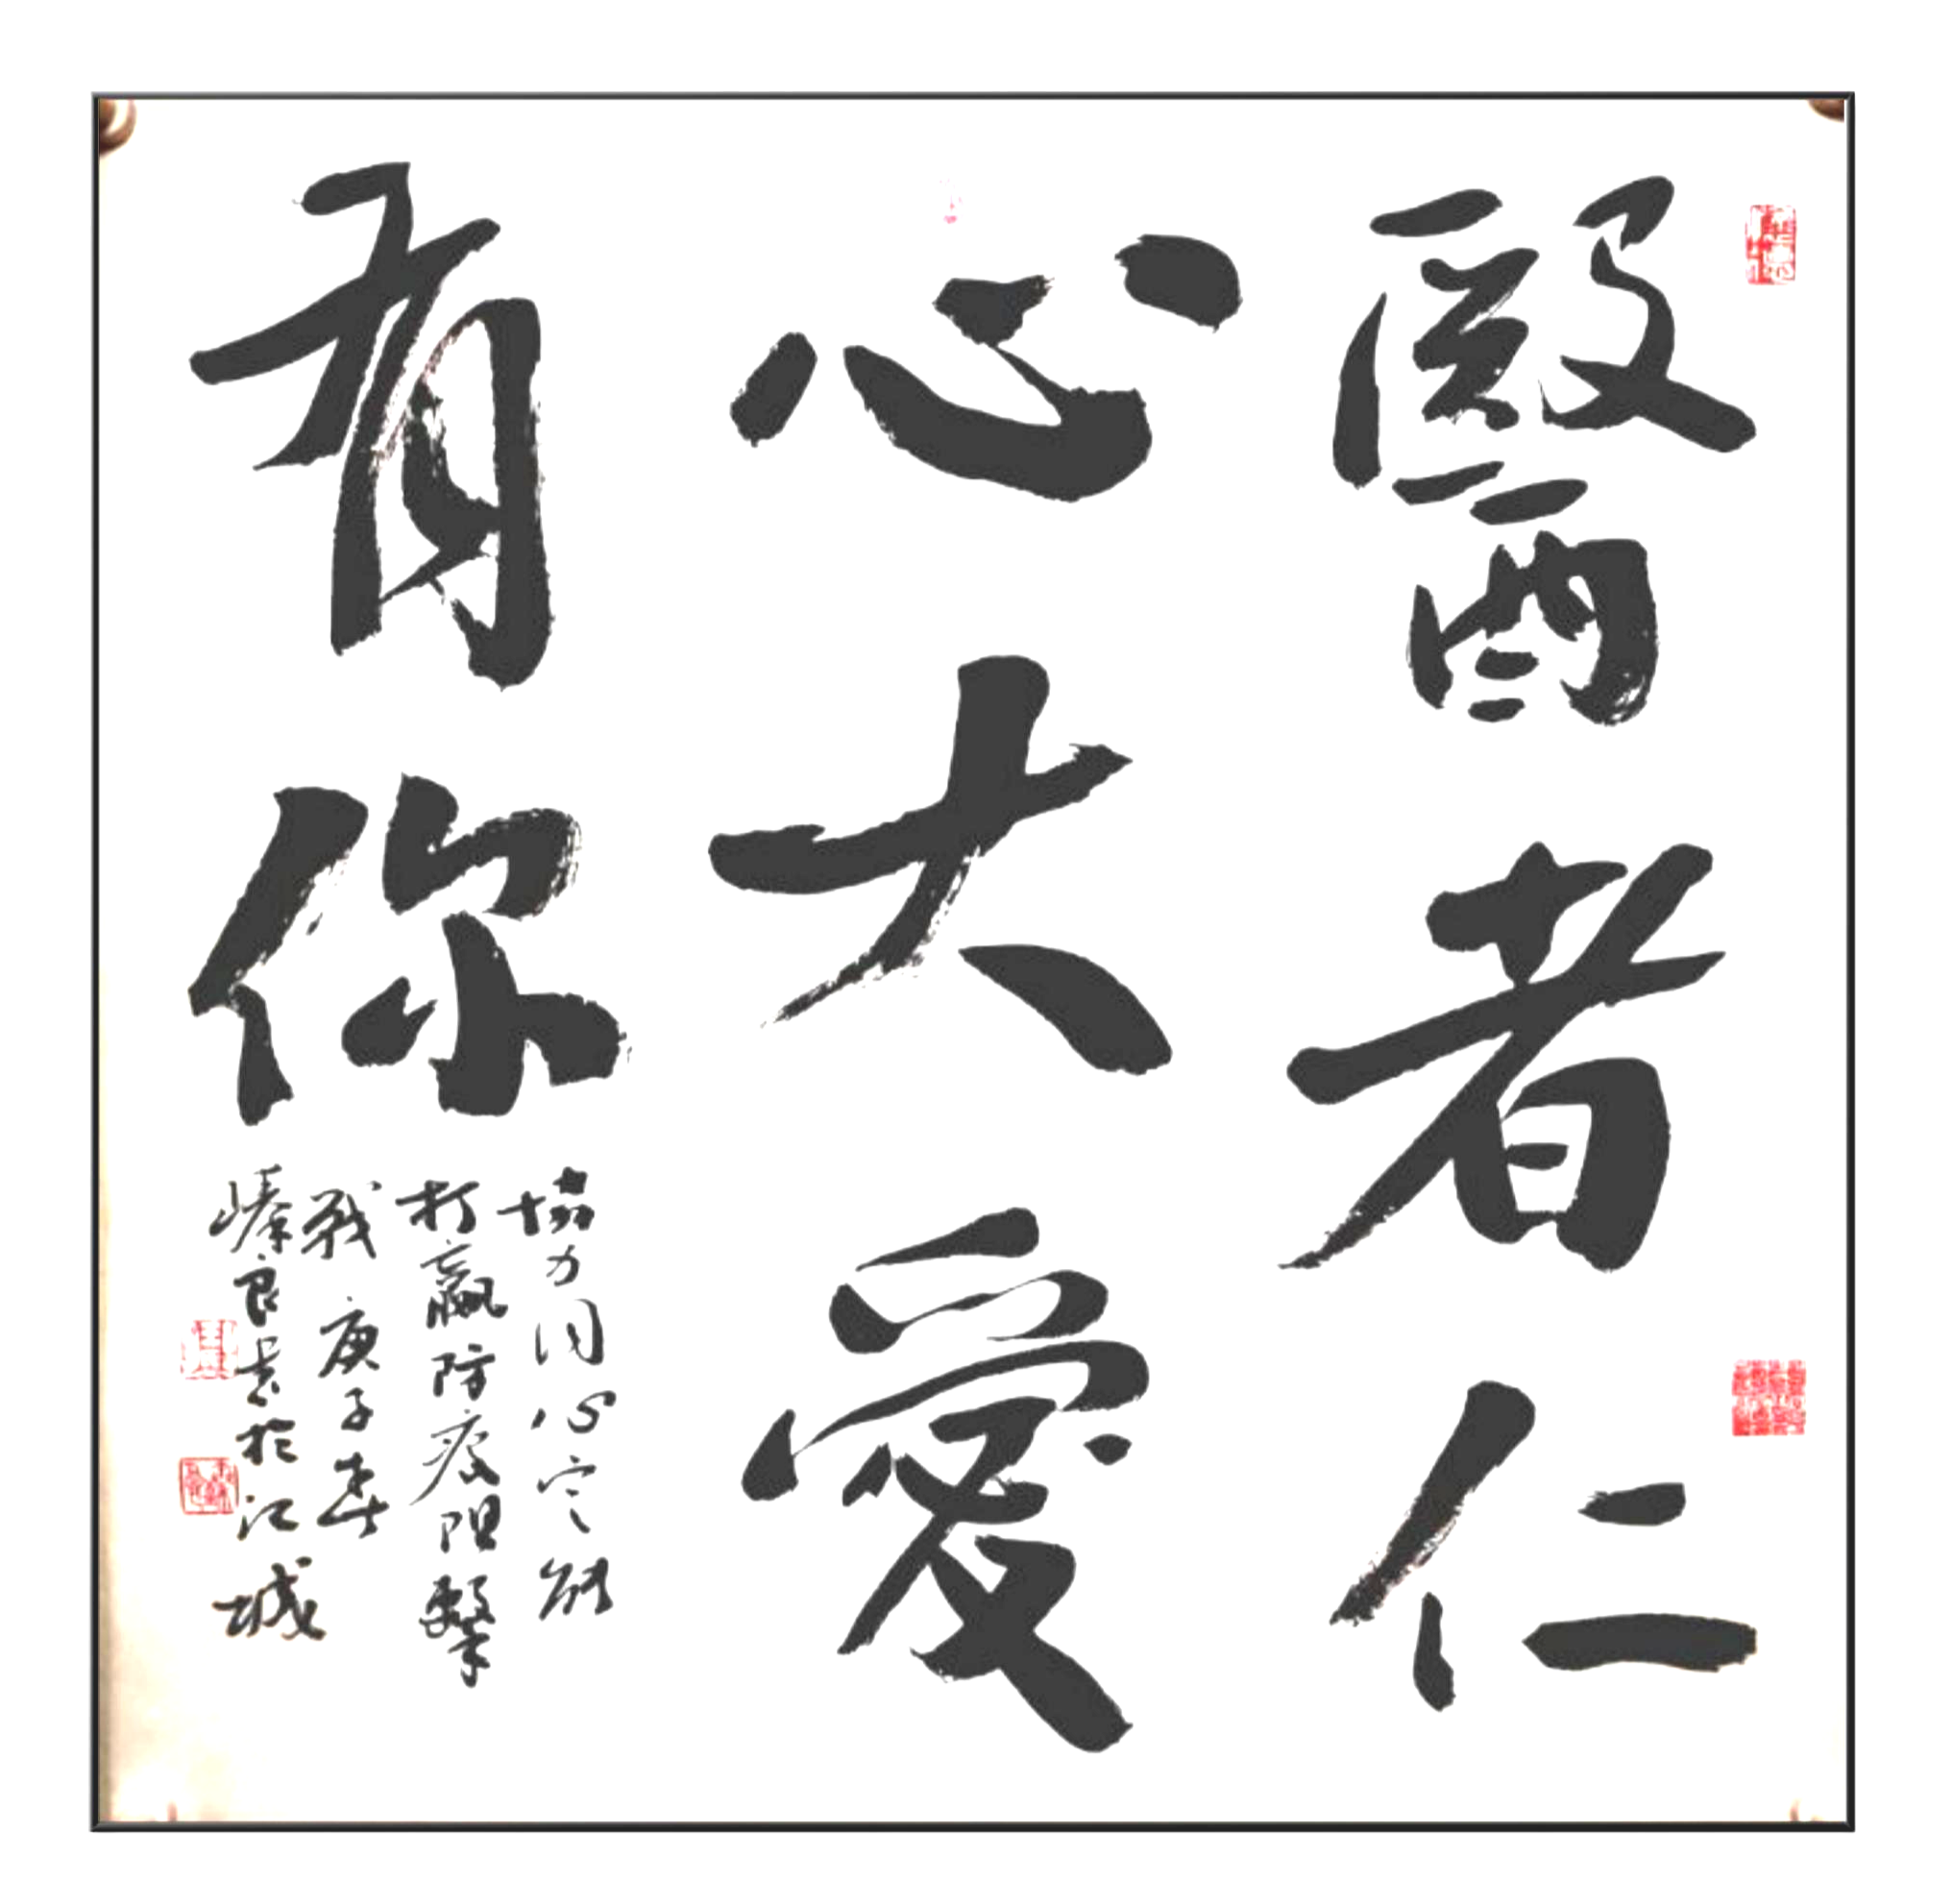 醫者仁
心大愛
有你
協力同心定能
打贏防疫阻擊
戰 庚子春
良書於江城